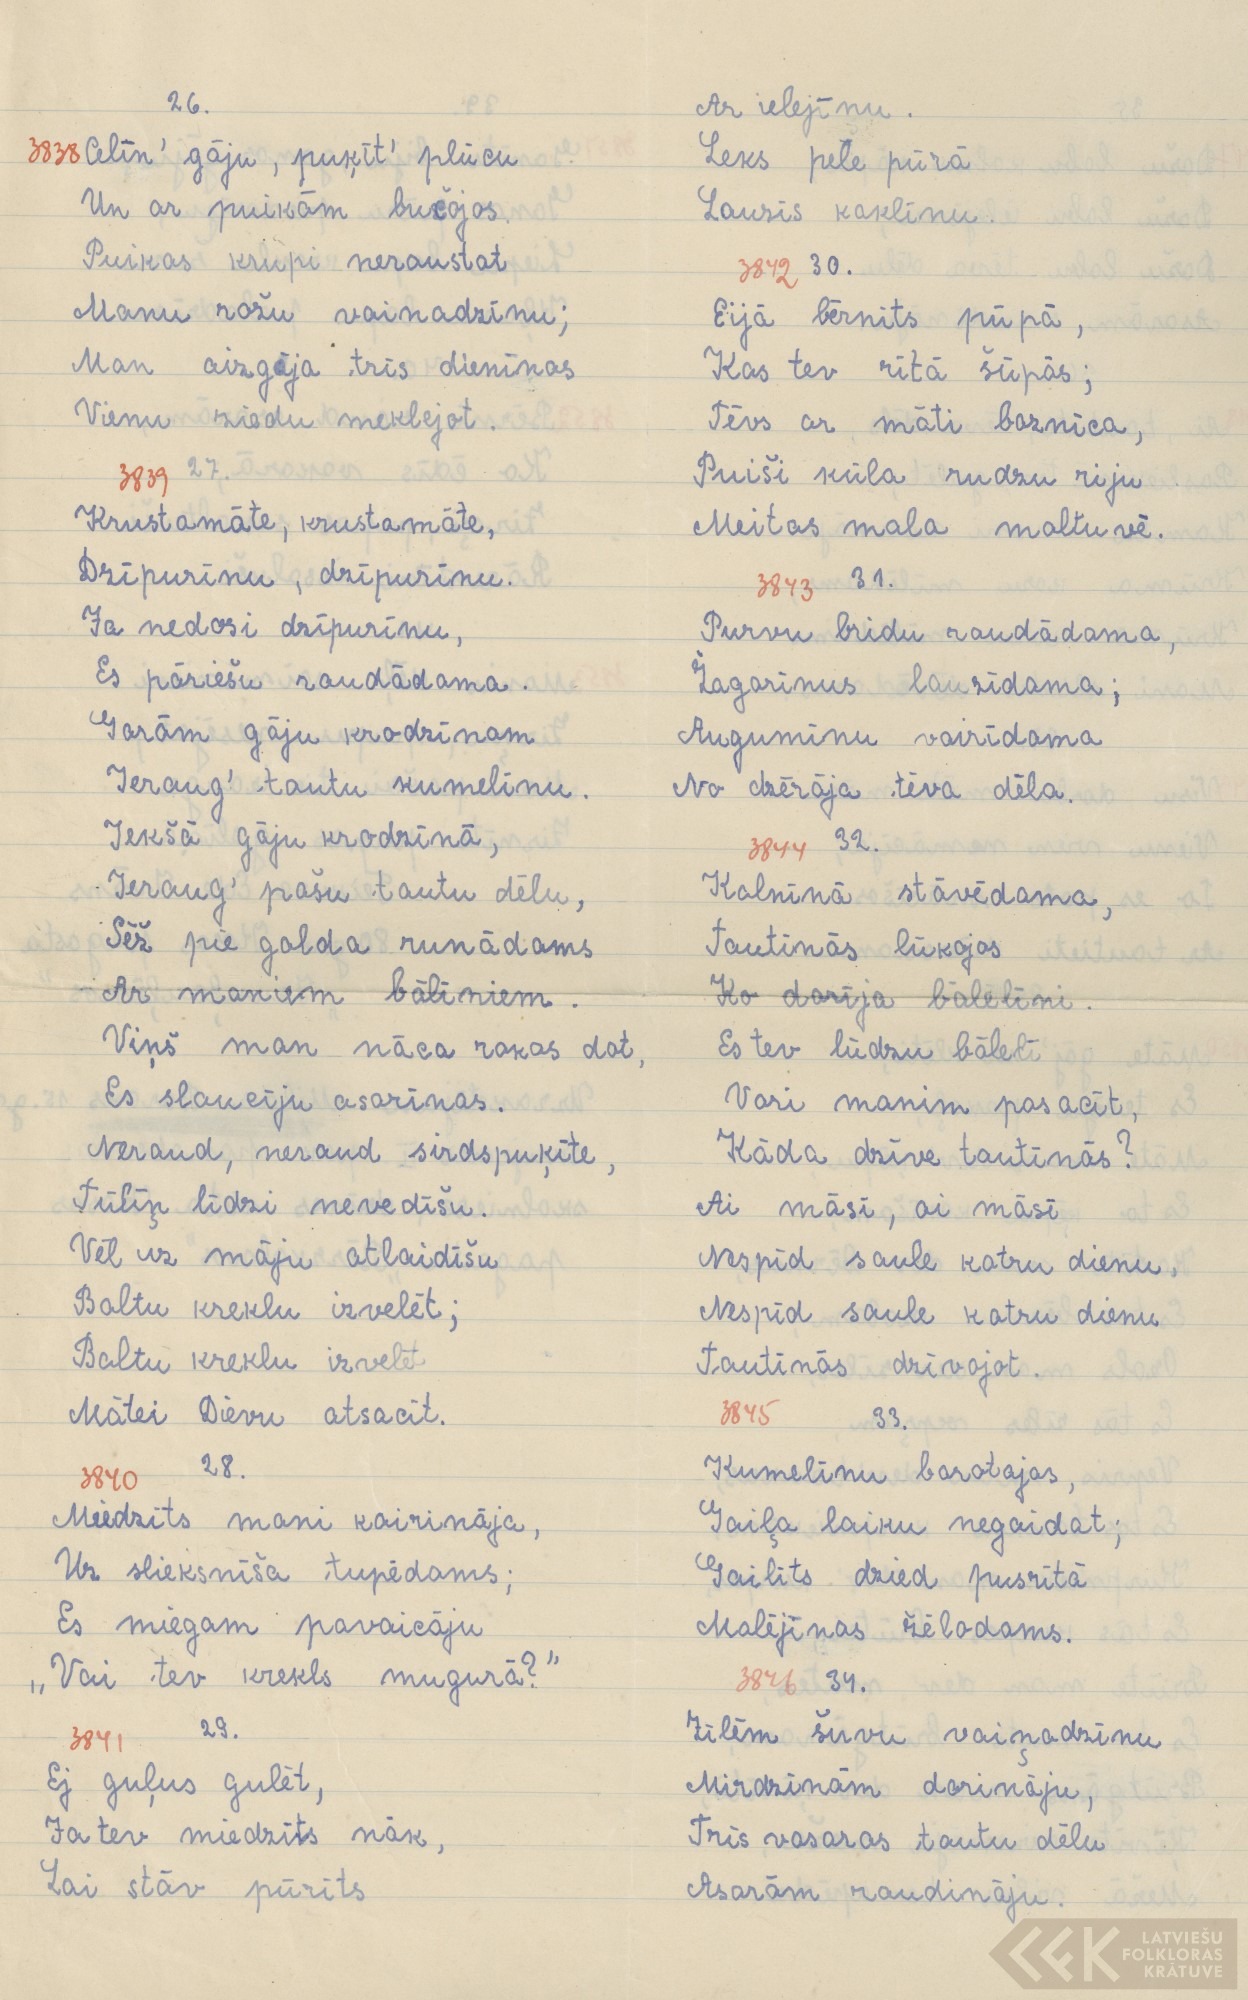 26.
3838 Celīn' gāju, puķīt' plūcu
Un ar puikām bučojos.
Puikas krūpi neraustat
Manu rožu vainadzīnu;
Man aizgāja trīs dienīnas
Vienu ziedu meklejot.
3839 27.
Krustamāte, krustamāte,
Dzīpurīnu, dzīpurīnu.
Ja nedosi dzīpurīnu,
Es pāriešu raudādama.
Garām gāju krodzīnam
Ieraug' tautu kumelīnu.
Iekšā gāju krodzīnā,
Ieraug' pašu tautu dēlu,
Sēž pie galda runādams
Ar maniem bāliniem.
Viņš man nāca rokas dot,
Es slaucīju asarīnas.
Neraud, neraud sirdspuķīte,
Tūlīņ līdzi nevedīšu.
Vēl uz māju atlaidīšu
Baltu kreklu izvelēt;
Baltu kreklu izvelēt
Mātei Dievu atsacīt.
3840 28.
Miedzīts mani kairināja,
Uz slieksnīša tupēdams;
Es miegam pavaicāju
„Vai tev krekls mugurā?"
3841 29.
Ej guļus gulēt,
Ja tev miedzīts nāk,
Lai stāv pūrīts
Ar ielejīnu.
Leks pele pūrā
Lauzīs kaklīnu.
3842 30.
Eijā bērnīts pūpā,
Kas tev rītā šūpās;
Tēvs ar māti baznīca,
Puiši kūla rudzu riju
Meitas mala maltuvē.
3843 31.
Purvu bridu raudādama,
Žagarīnus lauzīdama;
Augumīnu vairīdama
No dzērāja tēva dēla.
3844 32.
Kalnīnā stāvēdama,
Tautīnās lūkojos
Ko darīja bālelīni.
Es tev lūdzu bālelī
Vari manim pasacīt,
Kāda dzīve tautīnās?
Ai māsī, ai māsī
Nespīd saule katru dienu,
Nespīd saule katru dienu
Tautīnās dzīvojot.
3845 33.
Kumelīnu barotajas,
Gaiļa laiku negaidat;
Gailīts dzied pusrītā
Malējīnas žēlodams.
3846 34.
Zīlēm šuvu vaiņadzīnu
Mirdzīnām darināju,
Trīs vasaras tautu dēlu
Asarām raudināju.
LATVIEŠU
FOLKLORAS
KRĀTUVE